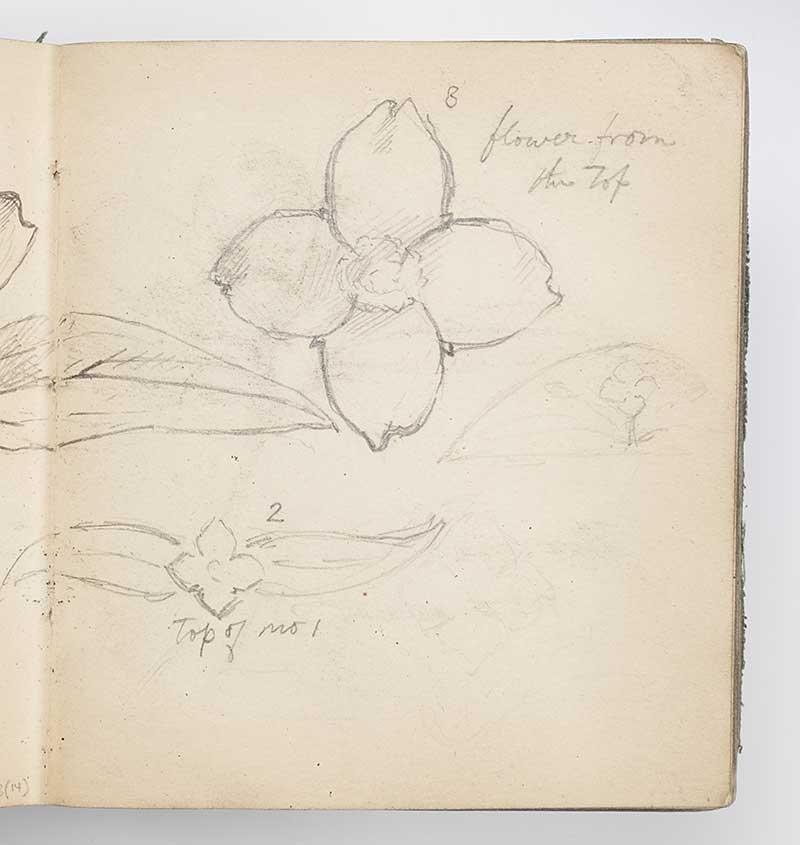 8
flower from
the Top
2
Top of no 1
(14)